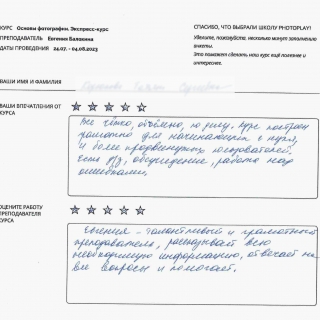 КУРС Основы фотографии. Экспресс-курс
ПРЕПОДАВАТЕЛЬ Евгения Балакина
ДАТЫ ПРОВЕДЕНИЯ 24.07. - 04.08.2023
СПАСИБО, ЧТО ВЫБРАЛИ ШКОЛУ PHOTOPLAY!
Уделите, пожалуйста, несколько минут заполнению
анкеты.
Это поможет сделать наш курс ещё полезнее и
интереснее.
ВАШИ ИМЯ И ФАМИЛИЯ
ВАШИ ВПЕЧАТЛЕНИЯ ОТ
КУРСА
Все чётко, объёмно, по делу. Курс построен
грамотно для начинающих с нуля,
и более продвинутых пользователей.
Есть д/з, обсуждение, работа над
ошибками.
ОЦЕНИТЕ РАБОТУ
ПРЕПОДАВАТЕЛЯ
КУРСА
Евгения - талантливый и грамотный
преподаватель, рассказывает всю
необходимую информацию, отвечает на
все вопросы и помогает.